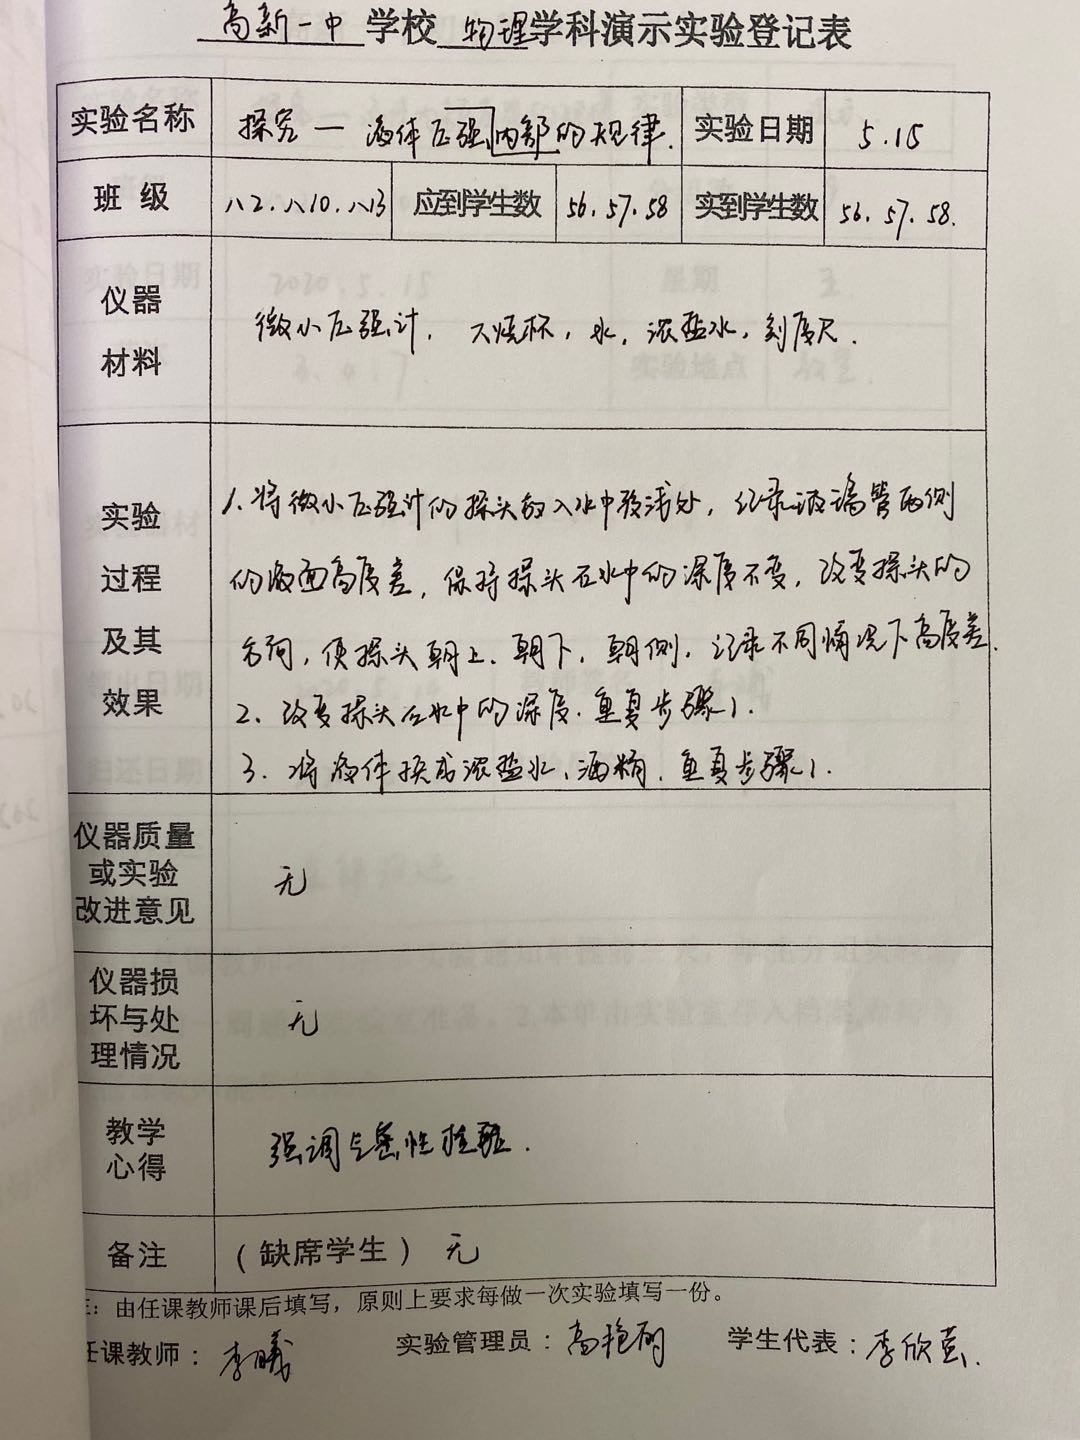 高新一中 学校 物理 学科演示实验登记表
实验名称 探究一液体压强内部的规律. 实验日期 5.15
班 级 八2.八10.八13 应到学生数 56.57.58 实到学生数 56.57.58.
仪器
材料
微小压强计, 大烧杯, 水, 浓盐水, 刻度尺.
实验
过程
及其
效果
1.将微小压强计的探头放入水中较浅处, 记录玻璃管两侧
的液面高度差, 保持探头在水中的深度不变, 改变探头的
方向, 使探头朝上、朝下, 朝侧, 记录不同情况下高度差.
2. 改变探头在水中的深度. 重复步骤1.
3. 将液体换成浓盐水、酒精. 重复步骤1.
仪器质量
或实验
改进意见
无
仪器损
坏与处
理情况
无
教学
心得
强调气密性检验.
备注 (缺席学生) 无
：由任课教师课后填写，原则上要求每做一次实验填写一份。
任课教师：李曦 实验管理员：高艳 学生代表：李欣
2020.5.15
星期 五
实验地点 教室